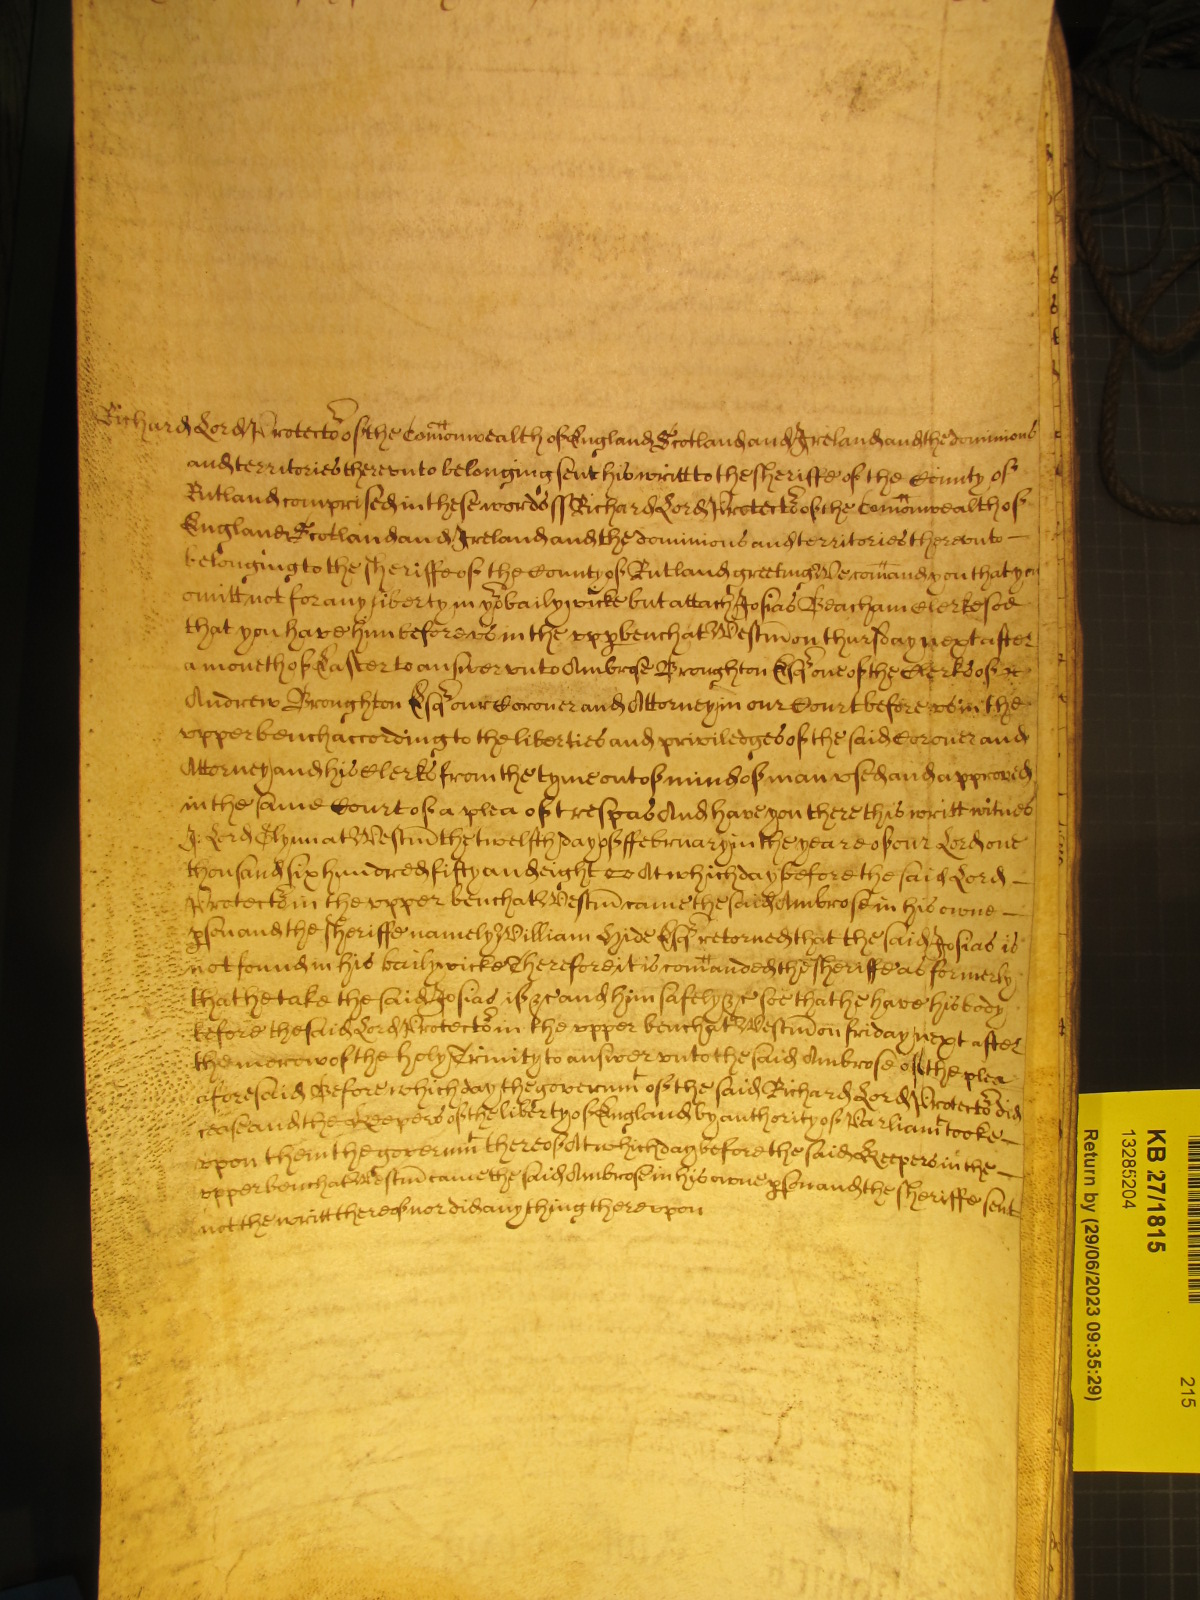 Richard Lord Protector of the Com̄onwealth of England Scotland and Ireland and the dominions
and territories thereunto belonging sent his writt to the sheriffe of the County of
Rutland comprised in these words ss Richard Lord Protector of the Com̄onwealth of
England Scotland and Ireland and the dominions and territories thereunto
belonging to the sheriffe of the County of Rutland greeting We com̄and you that you
omitt not for any liberty in yor bailywicke but attach Josias Beacham Clerke soe
that you have him before us in the upp bench at Westm̄ on thursday next after
a moneth of Easter to answer unto Ambrose Broughton Esqr one of the Clerks of
Andrew Broughton Esqr our Coroner and Attorney in our Court before us in the
upper bench according to the liberties and priviledges of the said Coroner and
Attorney and his Clerks from the tyme out of mind of man used and approved
in the same Court of a plea of trespas And have you there this writt witnes
J: Lord Glynn at Westm̄ the twelfth day of ffebruary in the yeare of our Lord one
thousand six hundred fifty and eight At which day before the said Lord
Protector in the upper bench at Westm̄ came the said Ambrose in his owne
pson and the sheriffe namely William Hide Esqr retorned that the said Josias is
not found in his bailywicke Therefore it is com̄anded the sheriffe as formerly
that he take the said Josias if &c and him safely &c soe that he have his body
before the said Lord Protector in the upper bench at Westm̄ on friday next after
the morrow of the holy Trinity to answer unto the said Ambrose of the plea
aforesaid Before which day the governmt of the said Richard Lord Protector did
cease and the Keepers of the liberty of England by authority of Parliamt tooke
upon them the governmt thereof At which day before the said Keepers in the
upper bench at Westm̄ came the said Ambrose in his owne pson and the sheriffe sent
not the writt thereof nor did any thing thereupon
KB 27/1815
13285204
Return by (29/06/2023 09:35:29)
215